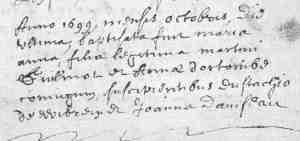 Anno 1699 mensis octobris, die
ultima, baptizata fuit maria
anna, filia legitima martini
et Annæ
coniugum, suscipientibus Eustachio
de et Joanna